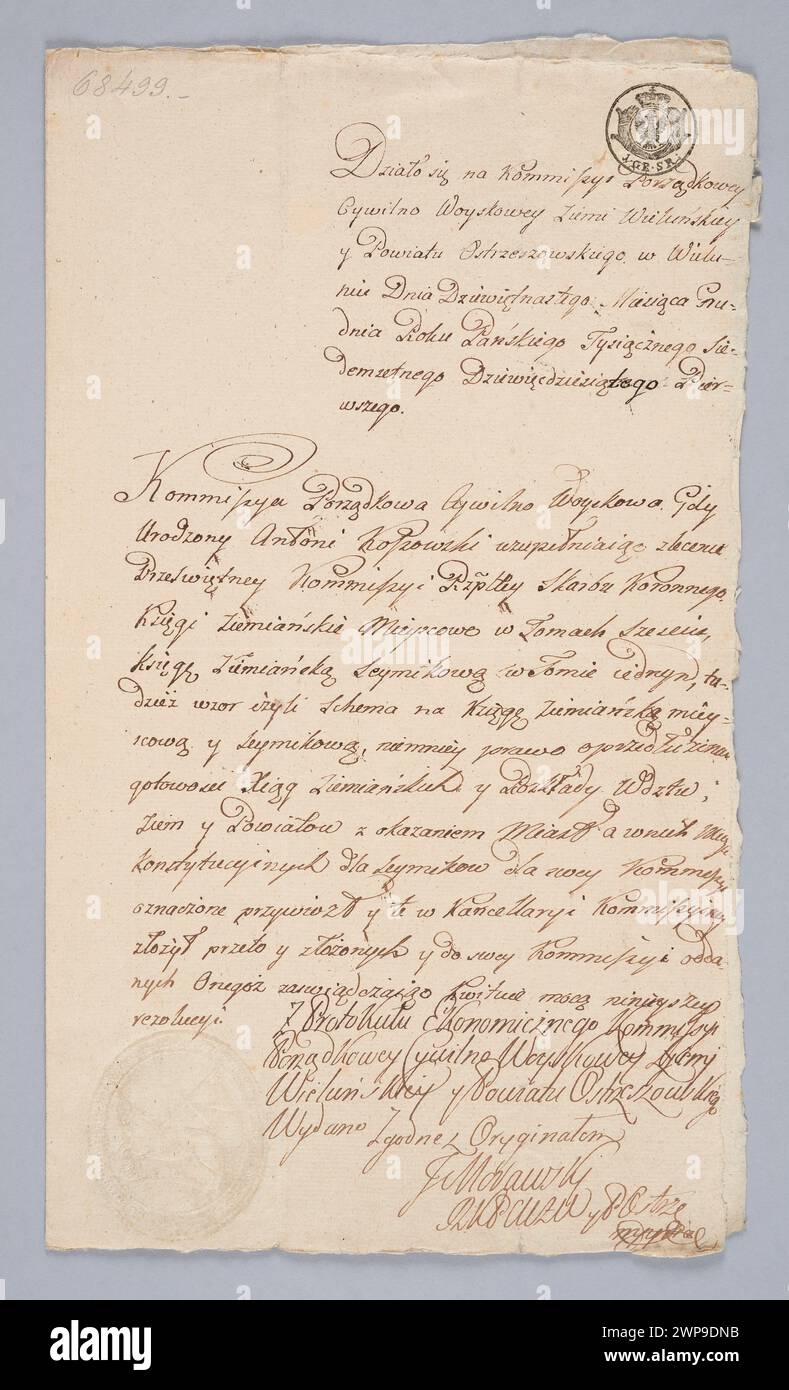 68499.-
1.GR.SR.
Działo się na Kommissyi Porządkowey
Cywilno Woyskowey Ziemi Wieluńskiey
y Powiatu Ostrzeszowskiego w Wielu-
niu Dnia Dziewiętnastego Miesiąca Gru-
dnia Roku Pańskiego Tysiącznego Sie-
demsetnego Dziewięćdziesiątego Pier-
wszego.
Kommissya Porządkowa Cywilno Woyskowa. Gdy
Urodzony Antoni uzupełniaiąc zlecenie
Przeświętney Kommissyi Rzpltey Skarbu Koronnego
Księgi Ziemiańskie Mieyscowe w Tomach Sześciu,
Księgę Ziemiańską Seymikową w Tomie iednym, tu-
dzież wzor czyli Schema na Księgę Ziemiańską miey-
scową y Seymikową, niemniey prawo o przedłużeniu
gotowości Xiąg Ziemiańskich y Rozkłady Wdztw,
Ziem y Powiatow z okazaniem Miast a w nich
Konstytucyinych dla Seymikow dla swey Kommissyi
oznaczone przywiozł y te w Kancellaryi Kommissyiney
złożył przeto y złożonych y do swey Kommissyi odda-
nych Onegoż zaświadczaiąc kwituie mocą ninieyszey
rezolucyi.
Z Protokułu Ekonomicznego Kommissyi
Porządkowey Cywilno Woyskowey Ziemi
Wieluńskiey y Powiatu Ostrzeszowskiego
Wydano Zgodne z Oryginałem
y P Ostrze
alamy
Image ID: 2WP9DNB
www.alamy.com